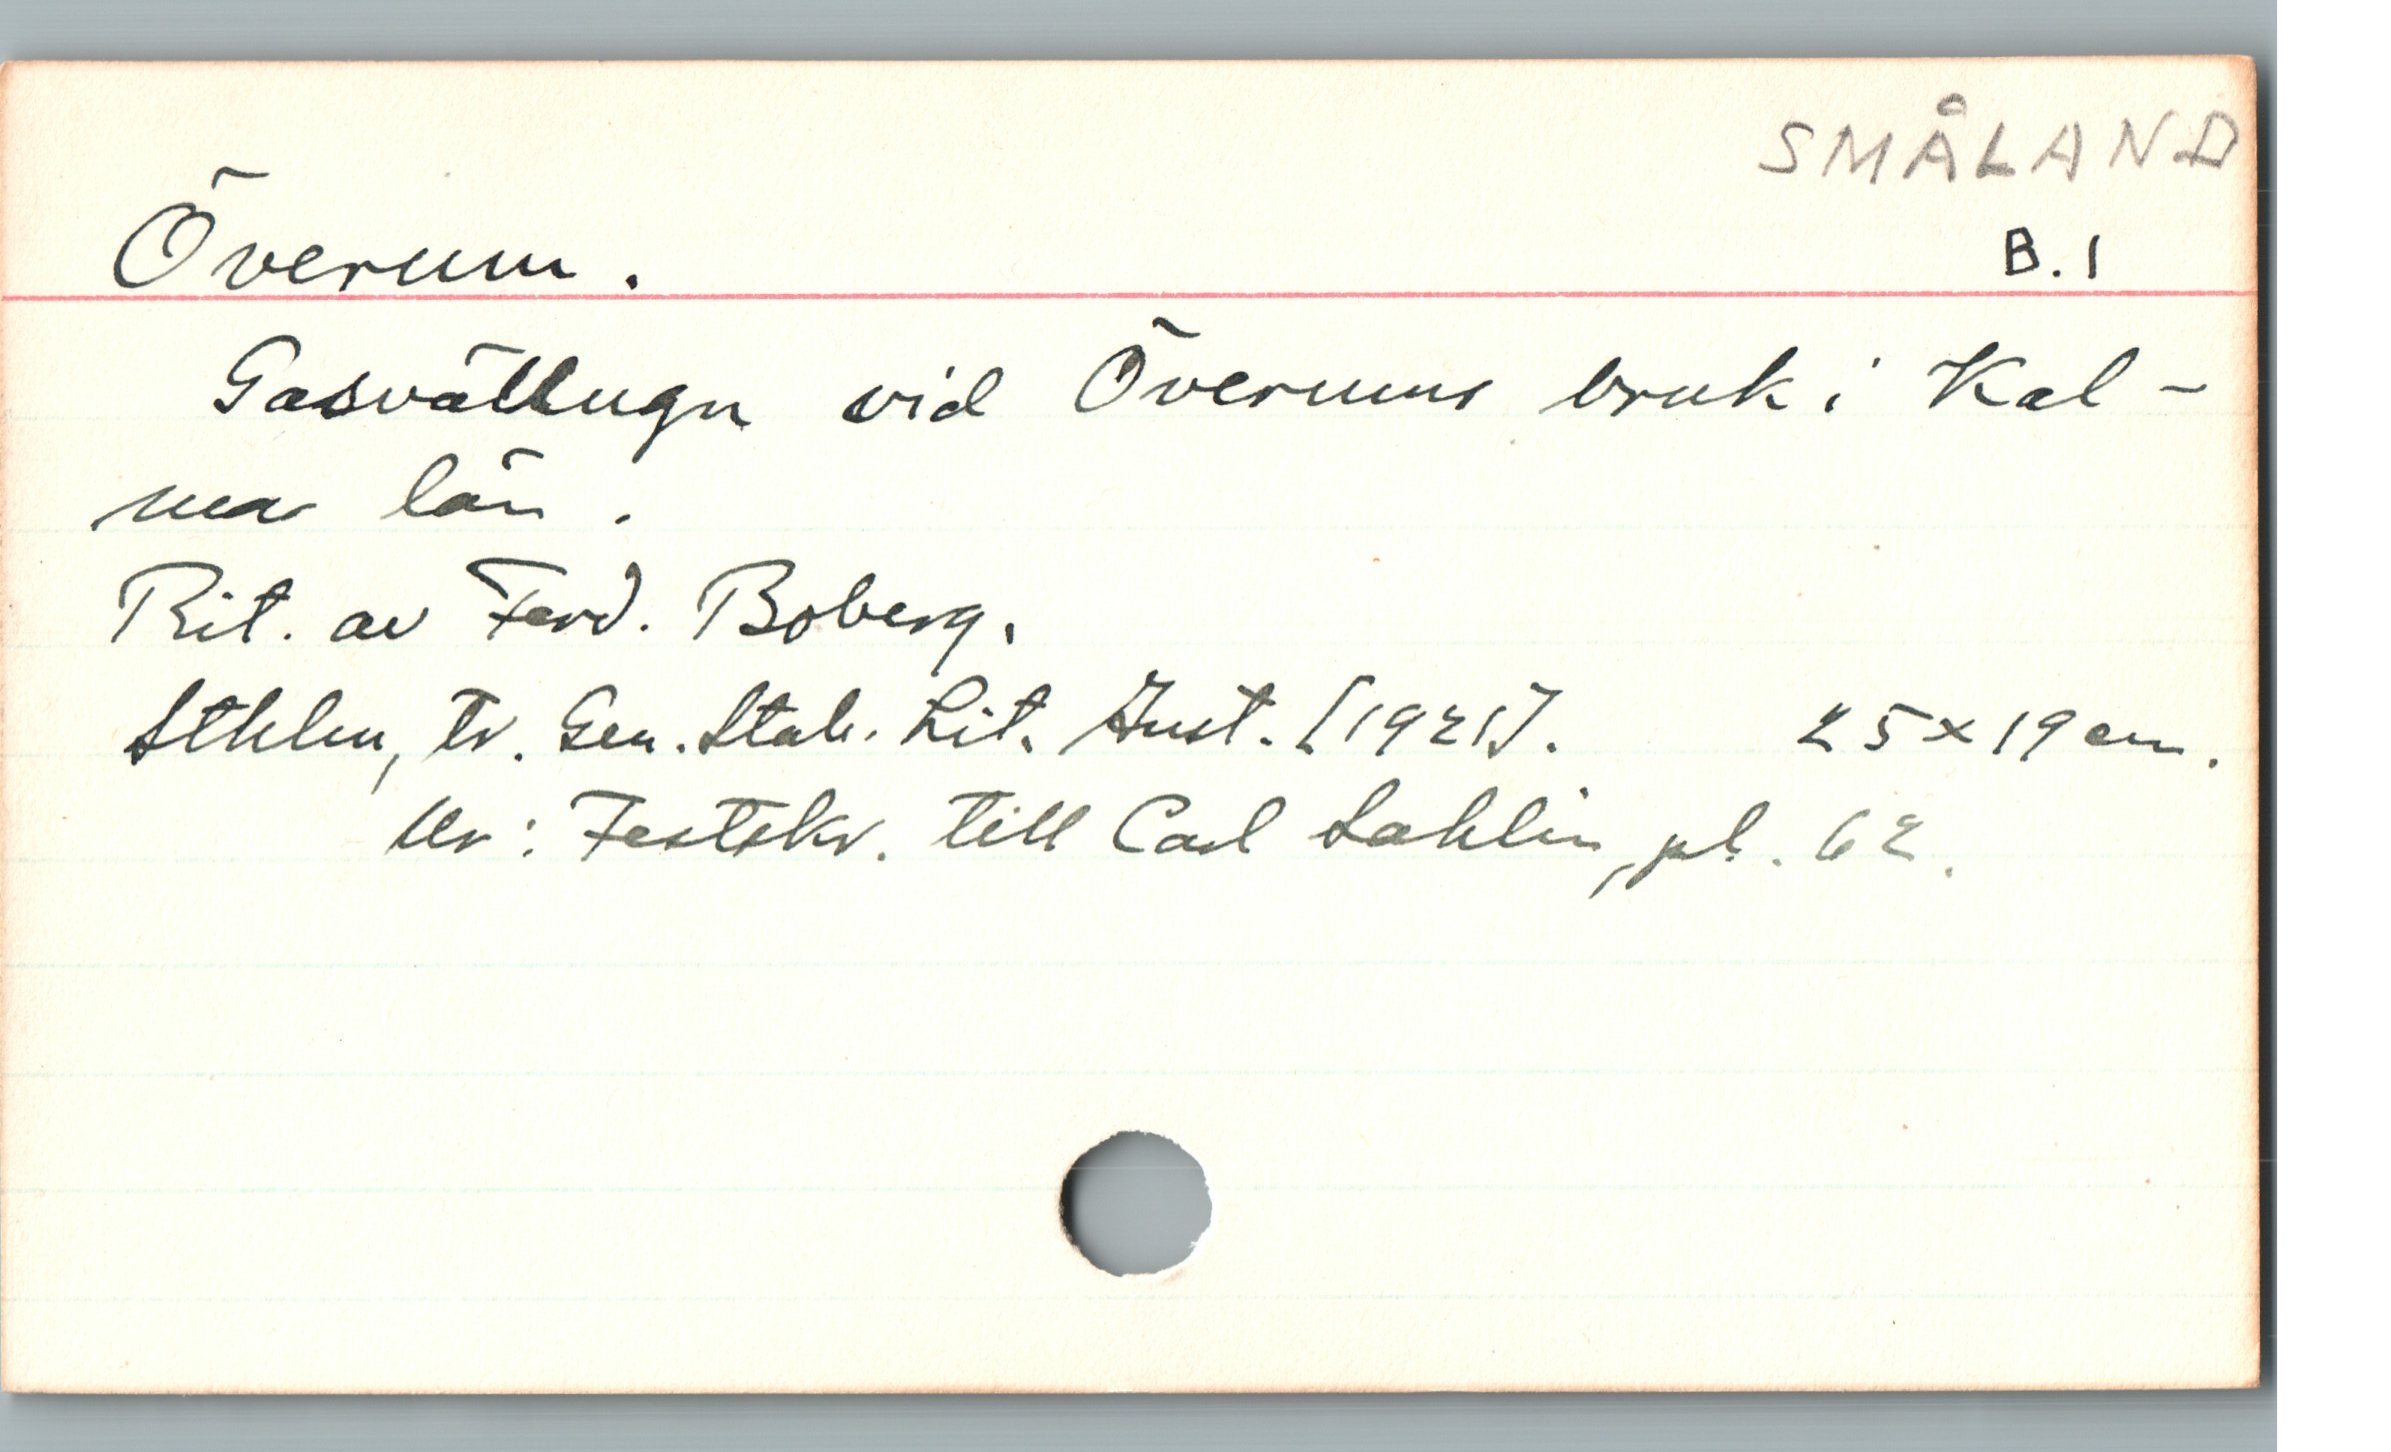 SMÅLAND
Överum.
B.1
Gasvällugn vid Överums bruk i Kal-
mar län.
Rit. av Ferd. Boberg.
Sthlm, tr. Gen. Stab. Lit. Anst. [1921]. 25 x 19 cm.
Ur: Festskr. till Carl Sahlin, pl. 62.